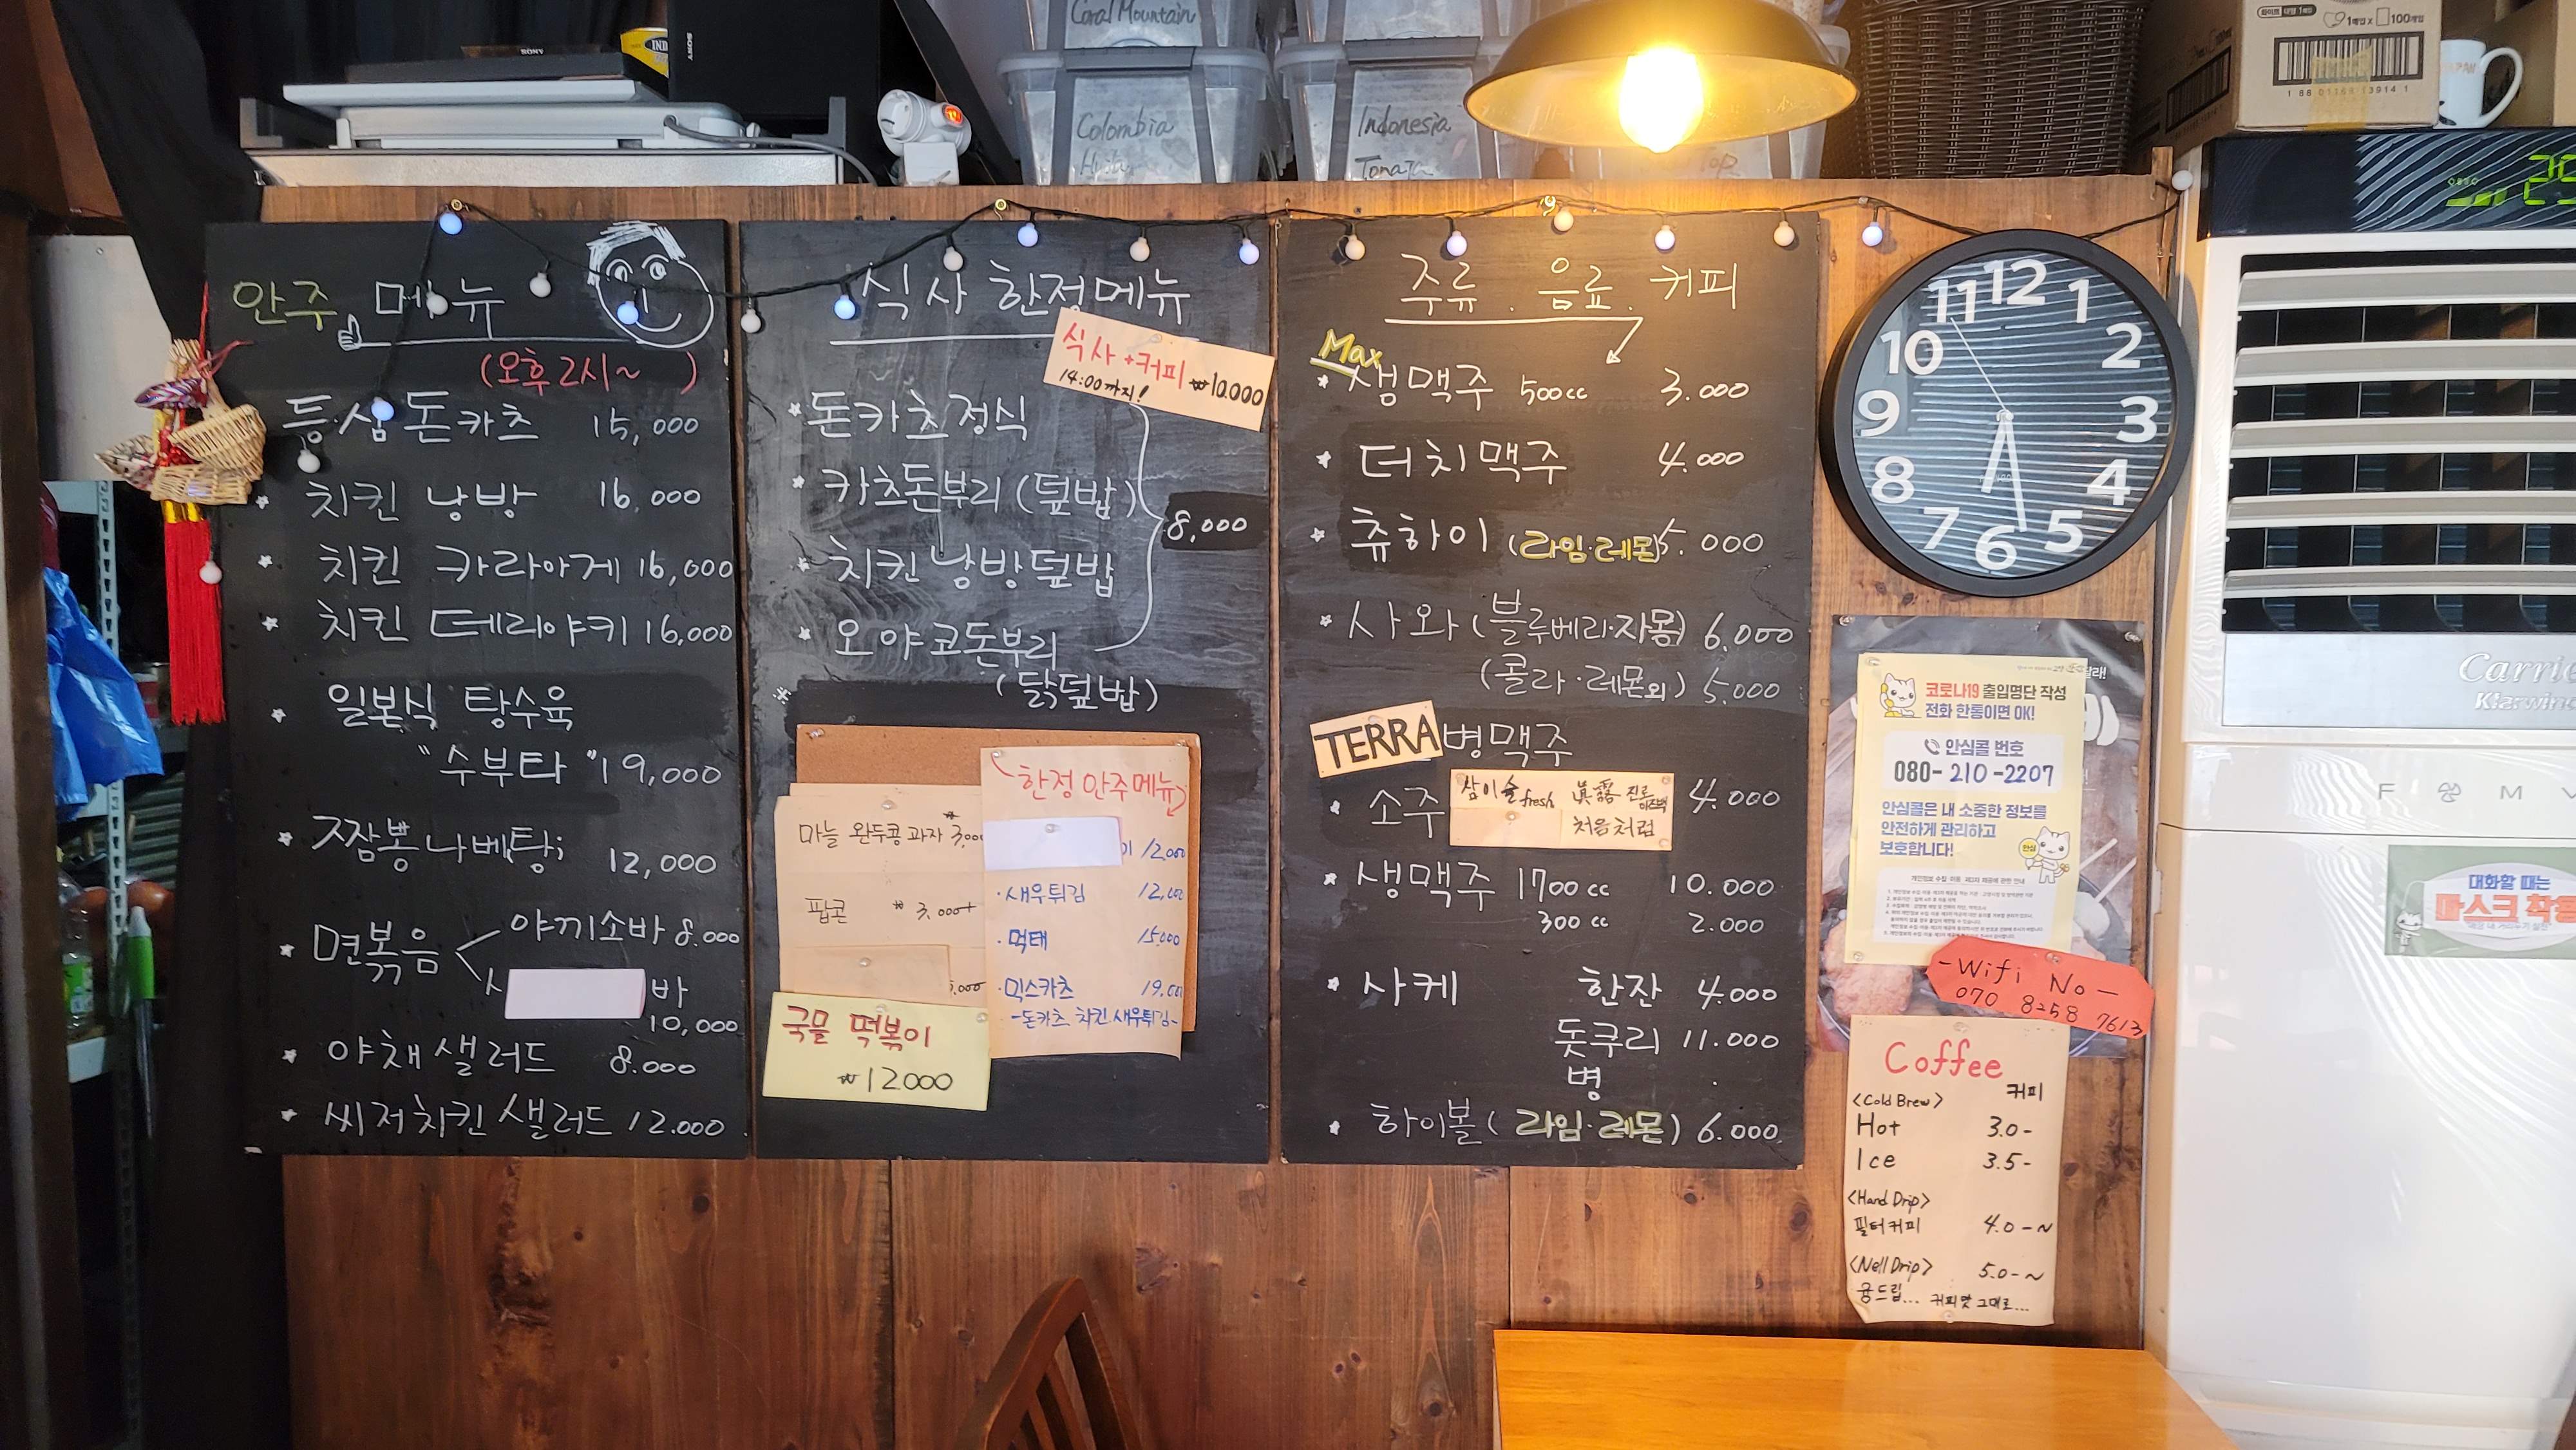 SONY
SONY
Coral Mountain
Colombia
Indonesia
1매입 X 100개입
안주 메뉴
(오후 2시~ )
등심돈카츠 15,000
치킨 낭방 16,000
치킨 카라아게 16,000
치킨 데리야키 16,000
일본식 탕수육
"수부타" 19,000
짬뽕나베탕; 12,000
면볶음 야끼소바 8.000
바
10,000
야채샐러드 8.000
씨저치킨샐러드 12.000
식사 한정메뉴
식사+커피 ₩10.000
14:00까지!
돈카츠정식
카츠돈부리(덮밥)
8,000
치킨낭방덮밥
오야코돈부리
(닭덮밥)
마늘 완두콩 과자 3,000
팝콘 ₩ 3,000+
국물 떡볶이
₩12000
한정 안주메뉴
12,000
·새우튀김 12,000
·먹태 15,000
·믹스카츠 19,000
-돈카츠 치킨.새우튀김-
주류 . 음료 . 커피
Max
생맥주 500cc 3.000
더치맥주 4.000
츄하이 (라임·레몬) 5.000
사와(블루베리·자몽) 6,000
(콜라·레몬외) 5,000
TERRA 병맥주
소주 참이슬 fresh 眞露 진로 이즈백 4.000
처음처럼
생맥주 1700cc 10.000
300cc 2.000
사케 한잔 4.000
돗쿠리 11.000
병
하이볼(라임·레몬) 6.000
12
1
2
3
4
5
6
7
8
9
10
11
코로나19 출입명단 작성
전화 한통이면 OK!
안심콜 번호
080-210-2207
안심콜은 내 소중한 정보를
안전하게 관리하고
보호합니다!
안심
-Wifi No-
070 8258 7613
Coffee
커피
<Cold Brew>
Hot 3.0-
Ice 3.5-
<Hand Drip>
필터커피 4.0-~
<Nell Drip> 5.0-~
융드립... 커피맛 그대로...
Carrie
Klarwind
대화할 때는
마스크 착용